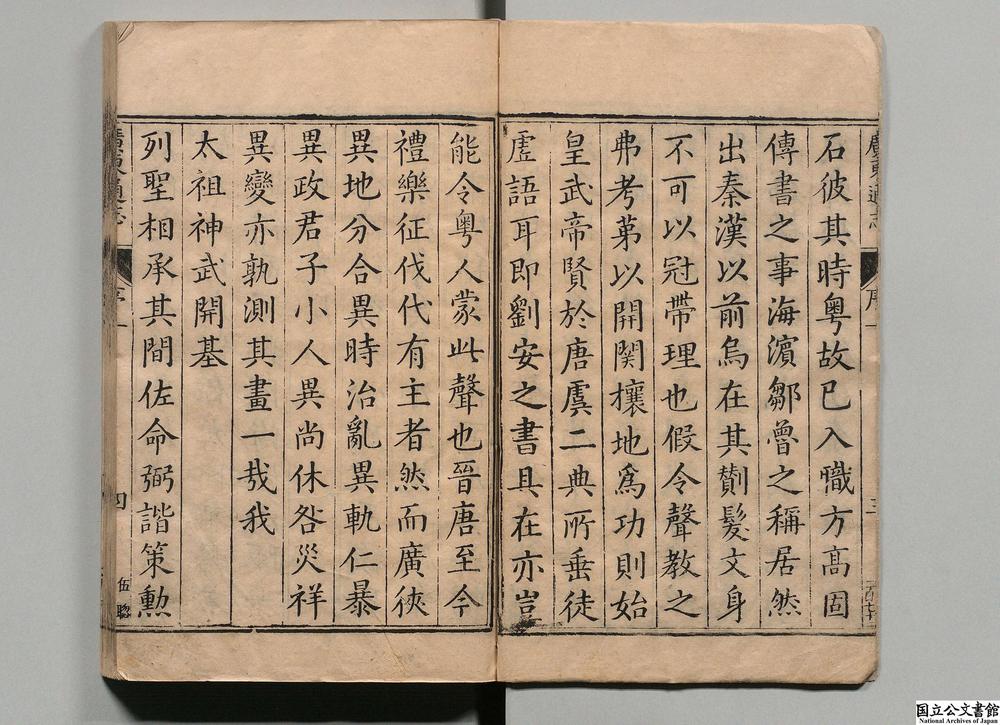 廣東通志
序
三
石彼其時粤故已入職方高固
傳書之事海濵鄒魯之稱居然
出秦漢以前烏在其劗髮文身
不可以冠帶理也假令聲教之
弗考苐以開闗攘地爲功則始
皇武帝賢於唐虞二典所垂徒
虚語耳即劉安之書具在亦豈
能令粤人蒙此聲也晉唐至今
禮樂征伐代有主者然而廣俠
異地分合異時治亂異軌仁暴
異政君子小人異尚休咎災祥
異變亦孰測其畫一㦲我
太祖神武開基
列聖相承其間佐命弼諧策勲
廣東通志
序
四
伍聰
国立公文書館
National Archives of Japan